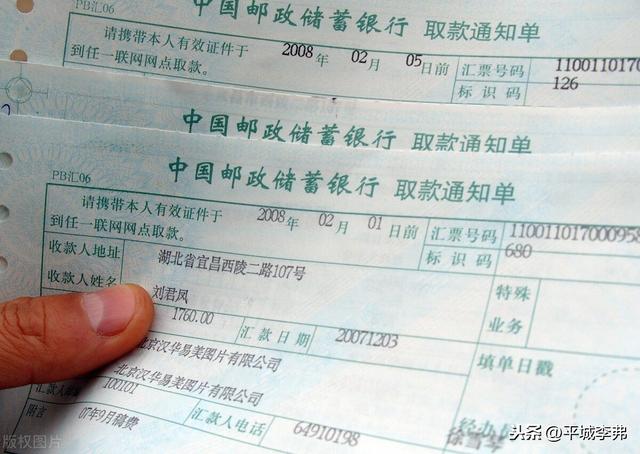 PB汇06
中国邮政储蓄银行 取款通知单
请携带本人有效证件于 2008年 02月 05日前
到任一联网网点取款。
汇票号码 11001101700
标识码 126
中国邮政储蓄银行 取款通知单
PB汇06
中国邮政储蓄银行 取款通知单
请携带本人有效证件于 2008年 02月 01日前
到任一联网网点取款。
汇票号码 110011017000958
标识码 680
收款人地址 湖北省宜昌西陵二路107号
收款人姓名 刘君凤
特殊
业务
1760.00 汇款日期 20071203
北京汉华易美图片有限公司
填单日戳
北京汉华易美图片有限公司
汇款人邮编 100101
附言 07年9月稿费 汇款人电话 64910198
经办
徐雪琴
版权图片
头条 @平城李弗